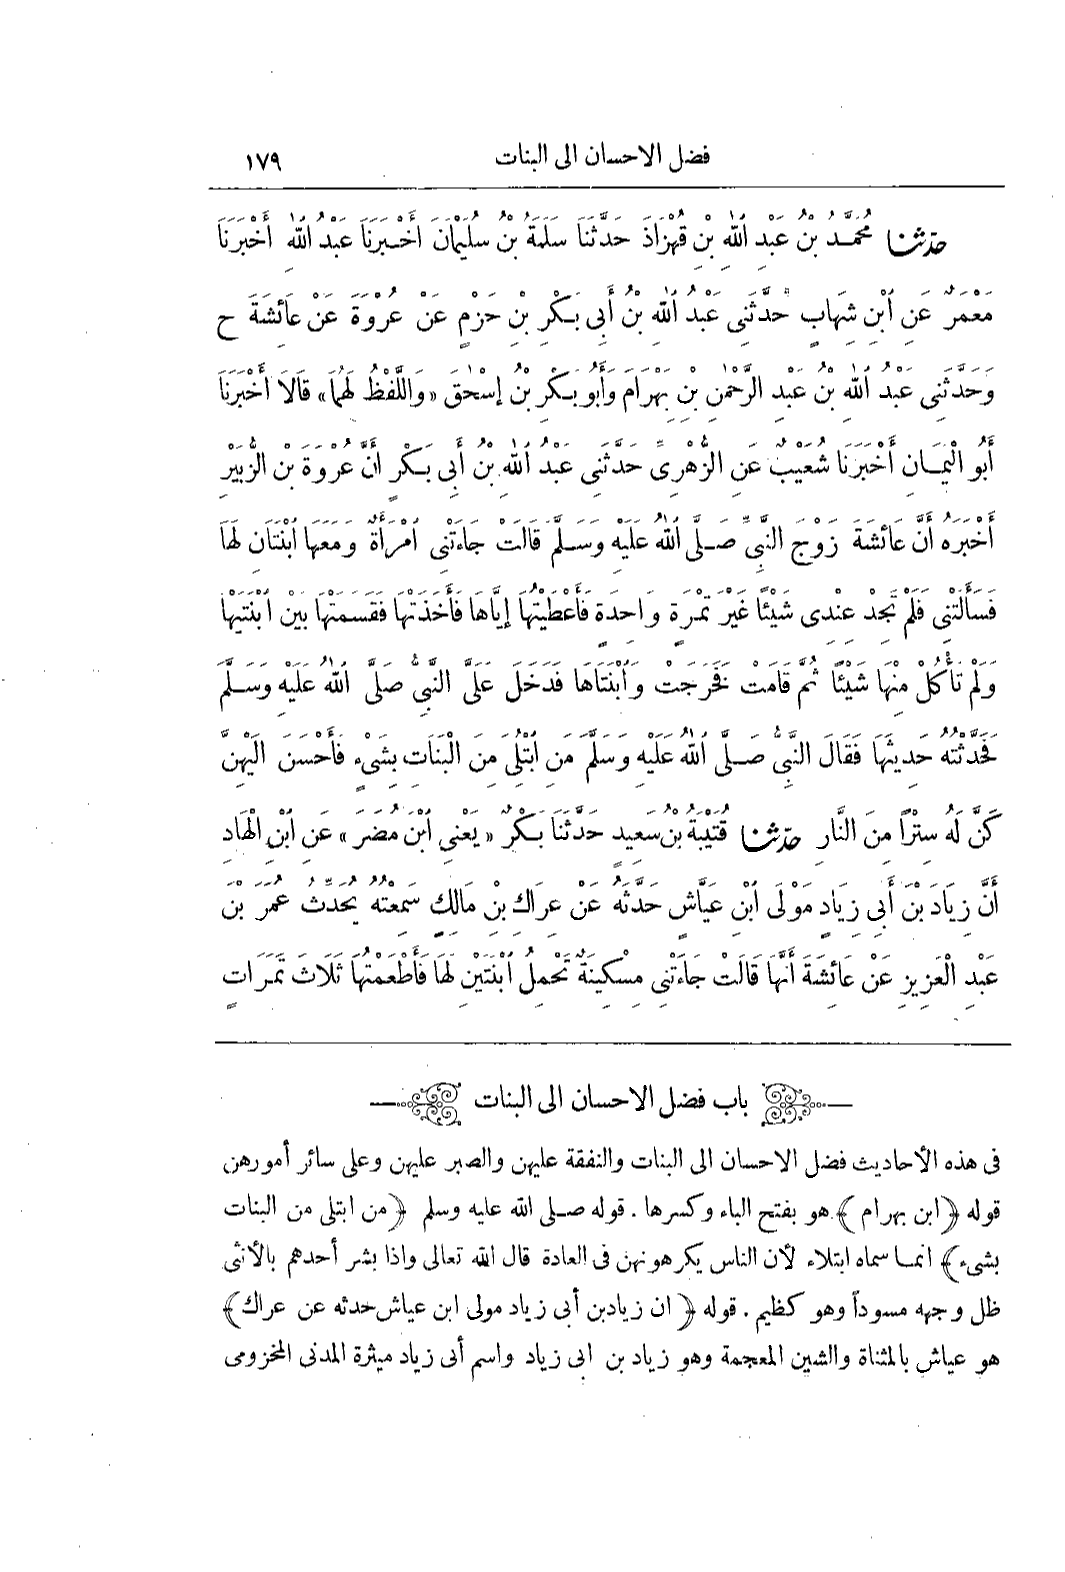 فضل الاحسان الى البنات ١٧٩
حدّثنا مُحَمَّدُ بْنُ عَبْدِ اللهِ بْنِ قُهْزَاذَ حَدَّثَنَا سَلَمَةُ بْنُ سُلَيْمَانَ أَخْبَرَنَا عَبْدُ اللهِ أَخْبَرَنَا
مَعْمَرٌ عَنِ ابْنِ شِهَابٍ حَدَّثَنِى عَبْدُ اللهِ بْنُ أَبِى بَكْرِ بْنِ حَزْمٍ عَنْ عُرْوَةَ عَنْ عَائِشَةَ ح
وَحَدَّثَنِى عَبْدُ اللهِ بْنُ عَبْدِ الرَّحْمٰنِ بْنِ بِهْرَامَ وَأَبُو بَكْرِ بْنُ إِسْحٰقَ «وَاللَّفْظُ لَهُمَا» قَالَا أَخْبَرَنَا
أَبُو الْيَمَانِ أَخْبَرَنَا شُعَيْبٌ عَنِ الزُّهْرِىِّ حَدَّثَنِى عَبْدُ اللهِ بْنُ أَبِى بَكْرٍ أَنَّ عُرْوَةَ بْنَ الزُّبَيْرِ
أَخْبَرَهُ أَنَّ عَائِشَةَ زَوْجَ النَّبِىِّ صَلَّى اللهُ عَلَيْهِ وَسَلَّمَ قَالَتْ جَاءَتْنِى امْرَأَةٌ وَمَعَهَا ابْنَتَانِ لَهَا
فَسَأَلَتْنِى فَلَمْ تَجِدْ عِنْدِى شَيْئًا غَيْرَ تَمْرَةٍ وَاحِدَةٍ فَأَعْطَيْتُهَا إِيَّاهَا فَأَخَذَتْهَا فَقَسَمَتْهَا بَيْنَ ابْنَتَيْهَا
وَلَمْ تَأْكُلْ مِنْهَا شَيْئًا ثُمَّ قَامَتْ فَخَرَجَتْ وَابْنَتَاهَا فَدَخَلَ عَلَىَّ النَّبِىُّ صَلَّى اللهُ عَلَيْهِ وَسَلَّمَ
فَحَدَّثْتُهُ حَدِيثَهَا فَقَالَ النَّبِىُّ صَلَّى اللهُ عَلَيْهِ وَسَلَّمَ مَنِ ابْتُلِىَ مِنَ الْبَنَاتِ بِشَىْءٍ فَأَحْسَنَ إِلَيْهِنَّ
كُنَّ لَهُ سِتْرًا مِنَ النَّارِ حدّثنا قُتَيْبَةُ بْنُ سَعِيدٍ حَدَّثَنَا بَكْرٌ «يَعْنِى ابْنَ مُضَرَ» عَنِ ابْنِ الْهَادِ
أَنَّ زِيَادَ بْنَ أَبِى زِيَادٍ مَوْلَى ابْنِ عَيَّاشٍ حَدَّثَهُ عَنْ عِرَاكِ بْنِ مَالِكٍ سَمِعْتُهُ يُحَدِّثُ عُمَرَ بْنَ
عَبْدِ الْعَزِيزِ عَنْ عَائِشَةَ أَنَّهَا قَالَتْ جَاءَتْنِى مِسْكِينَةٌ تَحْمِلُ ابْنَتَيْنِ لَهَا فَأَطْعَمْتُهَا ثَلَاثَ تَمَرَاتٍ
باب فضل الاحسان الى البنات
فى هذه الأحاديث فضل الاحسان الى البنات والنفقة عليهن والصبر عليهن وعلى سائر أمورهن
قوله ﴿ابن بهرام﴾ هو بفتح الباء وكسرها. قوله صلى الله عليه وسلم ﴿من ابتلى من البنات
بشىء﴾ انمـا سماه ابتلاء لأن الناس يكرهونهن فى العادة قال الله تعالى واذا بشر أحدهم بالأنثى
ظل وجهه مسوداً وهو كظيم. قوله ﴿ان زياد بن أبى زياد مولى ابن عياش حدثه عن عراك﴾
هو عياش بالمثناة والشين المعجمة وهو زياد بن أبى زياد واسم أبى زياد ميثرة المدنى المخزومى